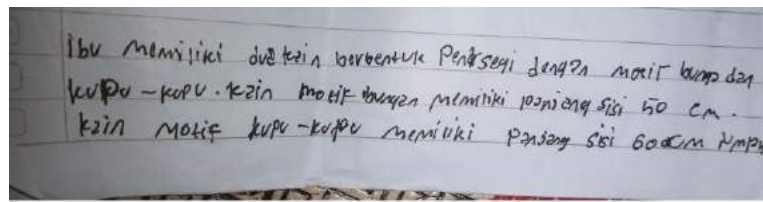 ibu memiliki dua kain berbentuk Persegi dengan motif bunga dan
kupu-kupu. kain motif bunga memiliki panjang sisi 50 cm.
kain motif kupu-kupu memiliki panjang sisi 60 cm